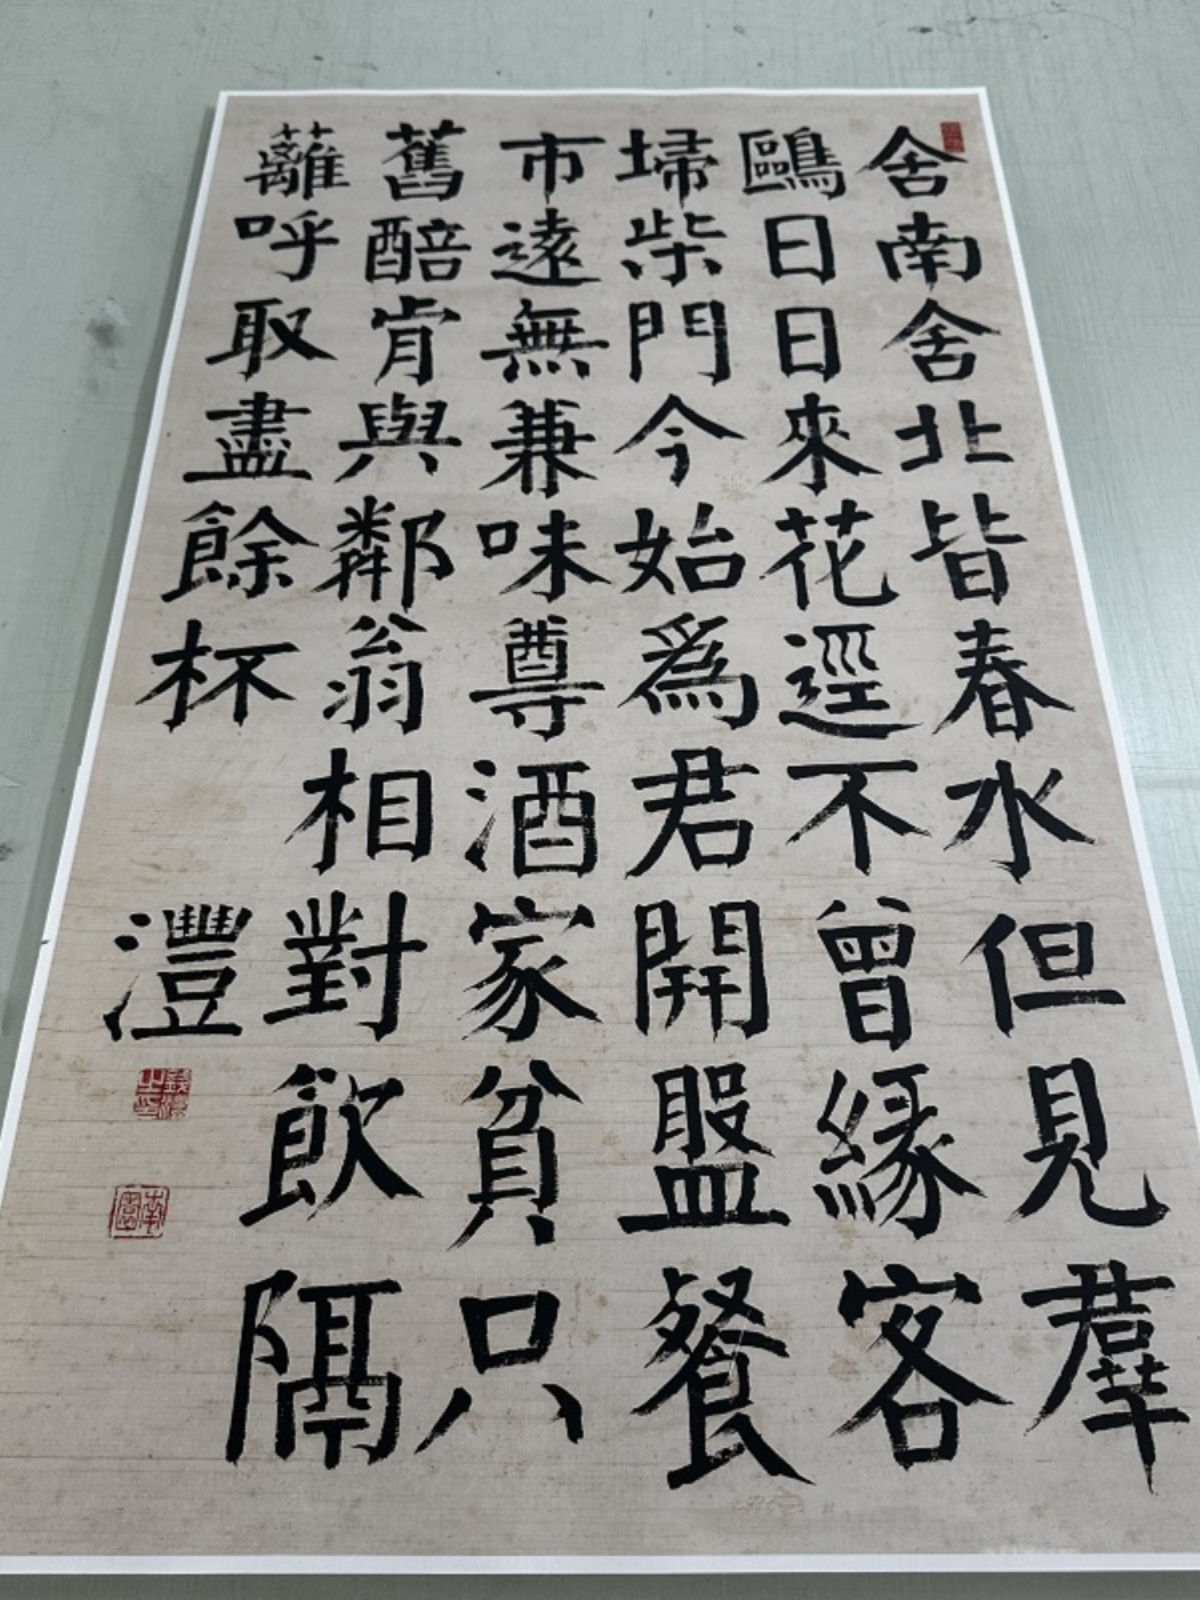 舍南舍北皆春水但見羣
鷗日日來花逕不曾緣客
埽柴門今始爲君開盤餐
市遠無兼味尊酒家貧只
舊醅肯與鄰翁相對飲隔
蘺呼取盡餘杯
灃
錢灃之印
南園